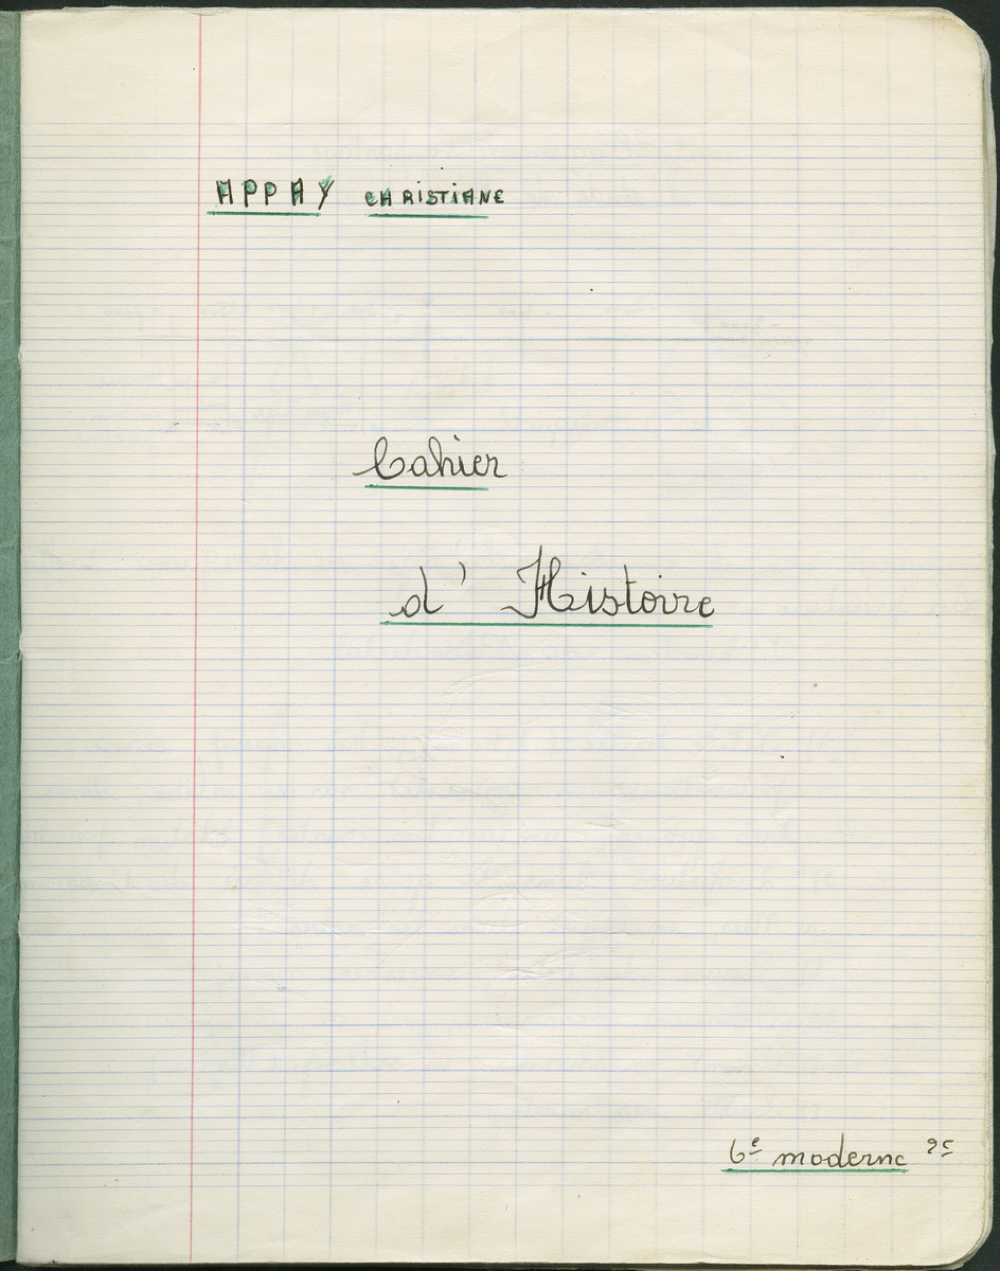 APPAY CHRISTIANE
Cahier
d' Histoire
6e moderne